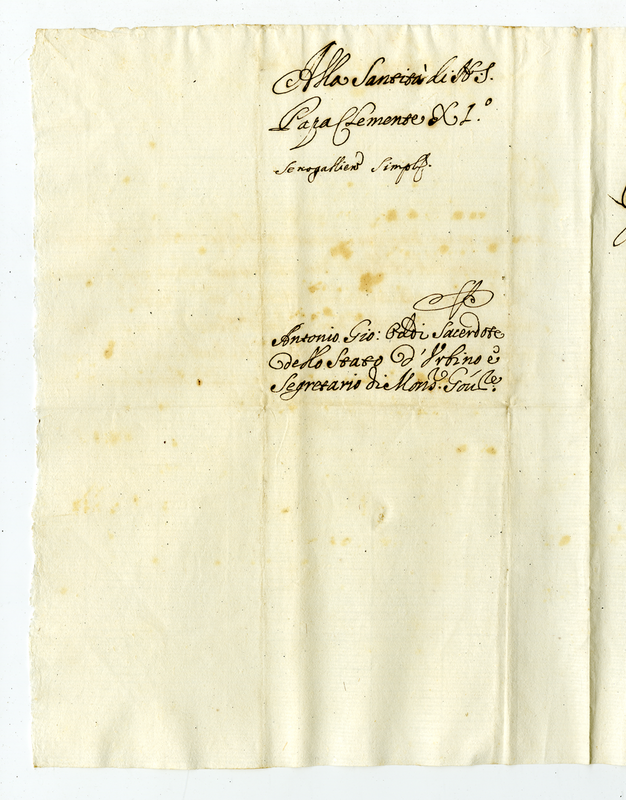 Alla Santità di N. S.
Papa Clemente XI.º
Senogallien Simpl.
Antonio Gio: Sacerdote
dello Stato d'Urbino è
Segretario di Mons.r Gou.le